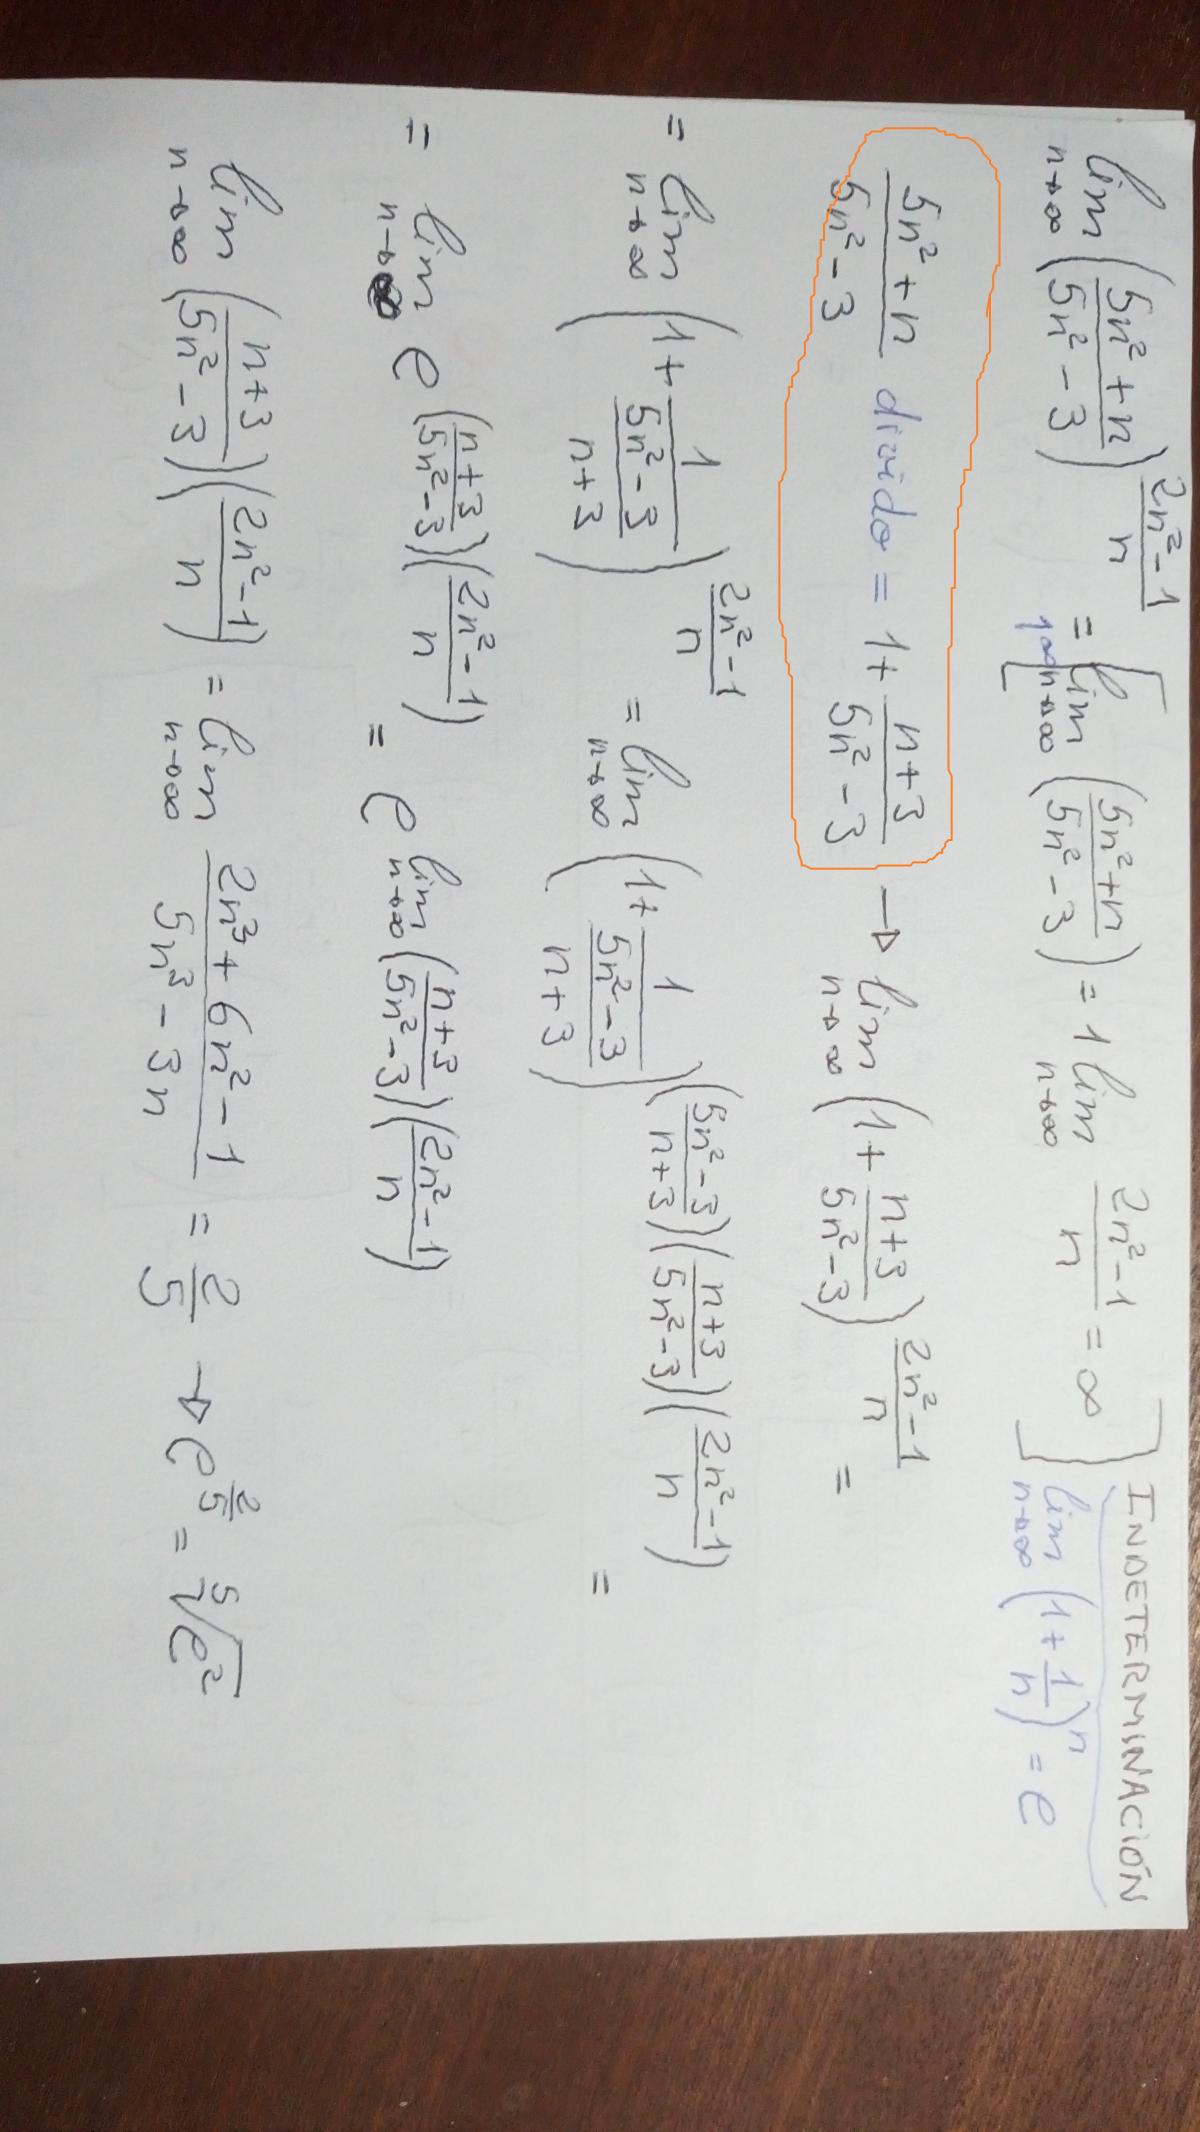 lim n→∞ ((5n²+n)/(5n²-3))^((2n²-1)/n) = 1^∞ [lim n→∞ ((5n²+n)/(5n²-3)) = 1 lim n→∞ (2n²-1)/n = ∞] INDETERMINACIÓN
lim n→∞ (1+1/n)^n = e
(5n²+n)/(5n²-3) divido = 1+ (n+3)/(5n²-3) → lim n→∞ (1+ (n+3)/(5n²-3))^((2n²-1)/n) =
= lim n→∞ (1+ 1/((5n²-3)/(n+3)))^((2n²-1)/n) = lim n→∞ (1+ 1/((5n²-3)/(n+3)))^(((5n²-3)/(n+3))((n+3)/(5n²-3))((2n²-1)/n)) =
= lim n→∞ e^(((n+3)/(5n²-3))((2n²-1)/n)) = e^(lim n→∞ ((n+3)/(5n²-3))((2n²-1)/n))
lim n→∞ ((n+3)/(5n²-3))((2n²-1)/n) = lim n→∞ (2n³+6n²-1)/(5n³-3n) = 2/5 → e^(2/5) = ⁵√e²